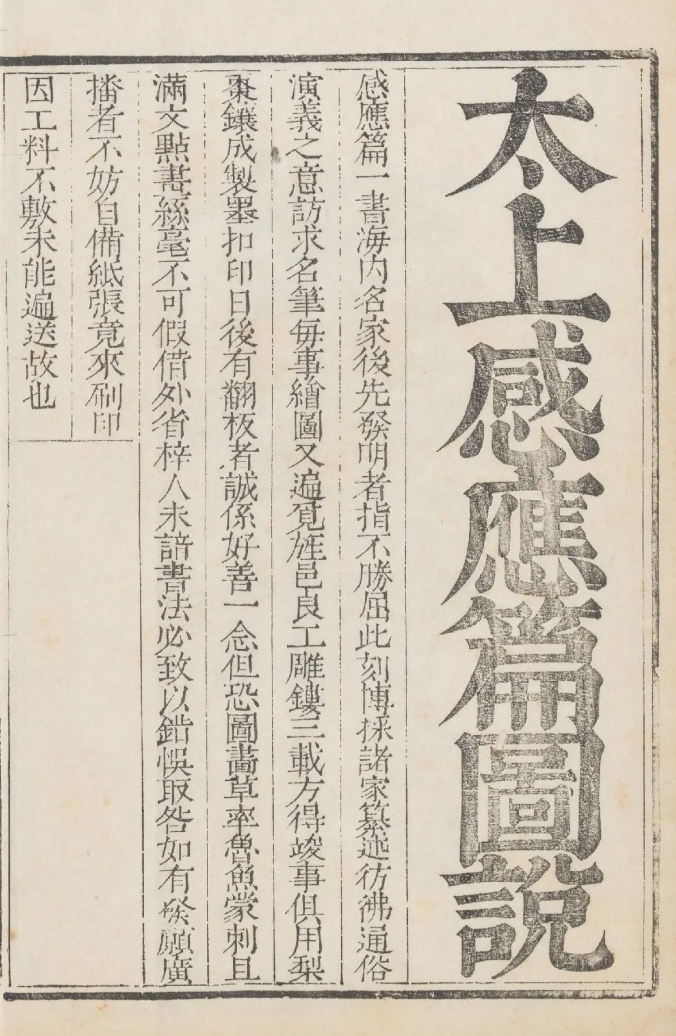 太上感應篇圖說
感應篇一書海内名家後先發明者指不勝屈此刻博採諸家纂述彷彿通俗
演義之意訪求名筆每事繪圖又遍覓旌邑良工雕鏤三載方得竣事俱用梨
棗鑲成製墨扣印日後有翻板者誠係好善一念但恐圖畫草率魯魚蒙刺且
滿文點畫絲毫不可假借外省梓人未諳書法必致以錯悞取咎如有發願廣
播者不妨自備紙張竟來刷印
因工料不敷未能遍送故也